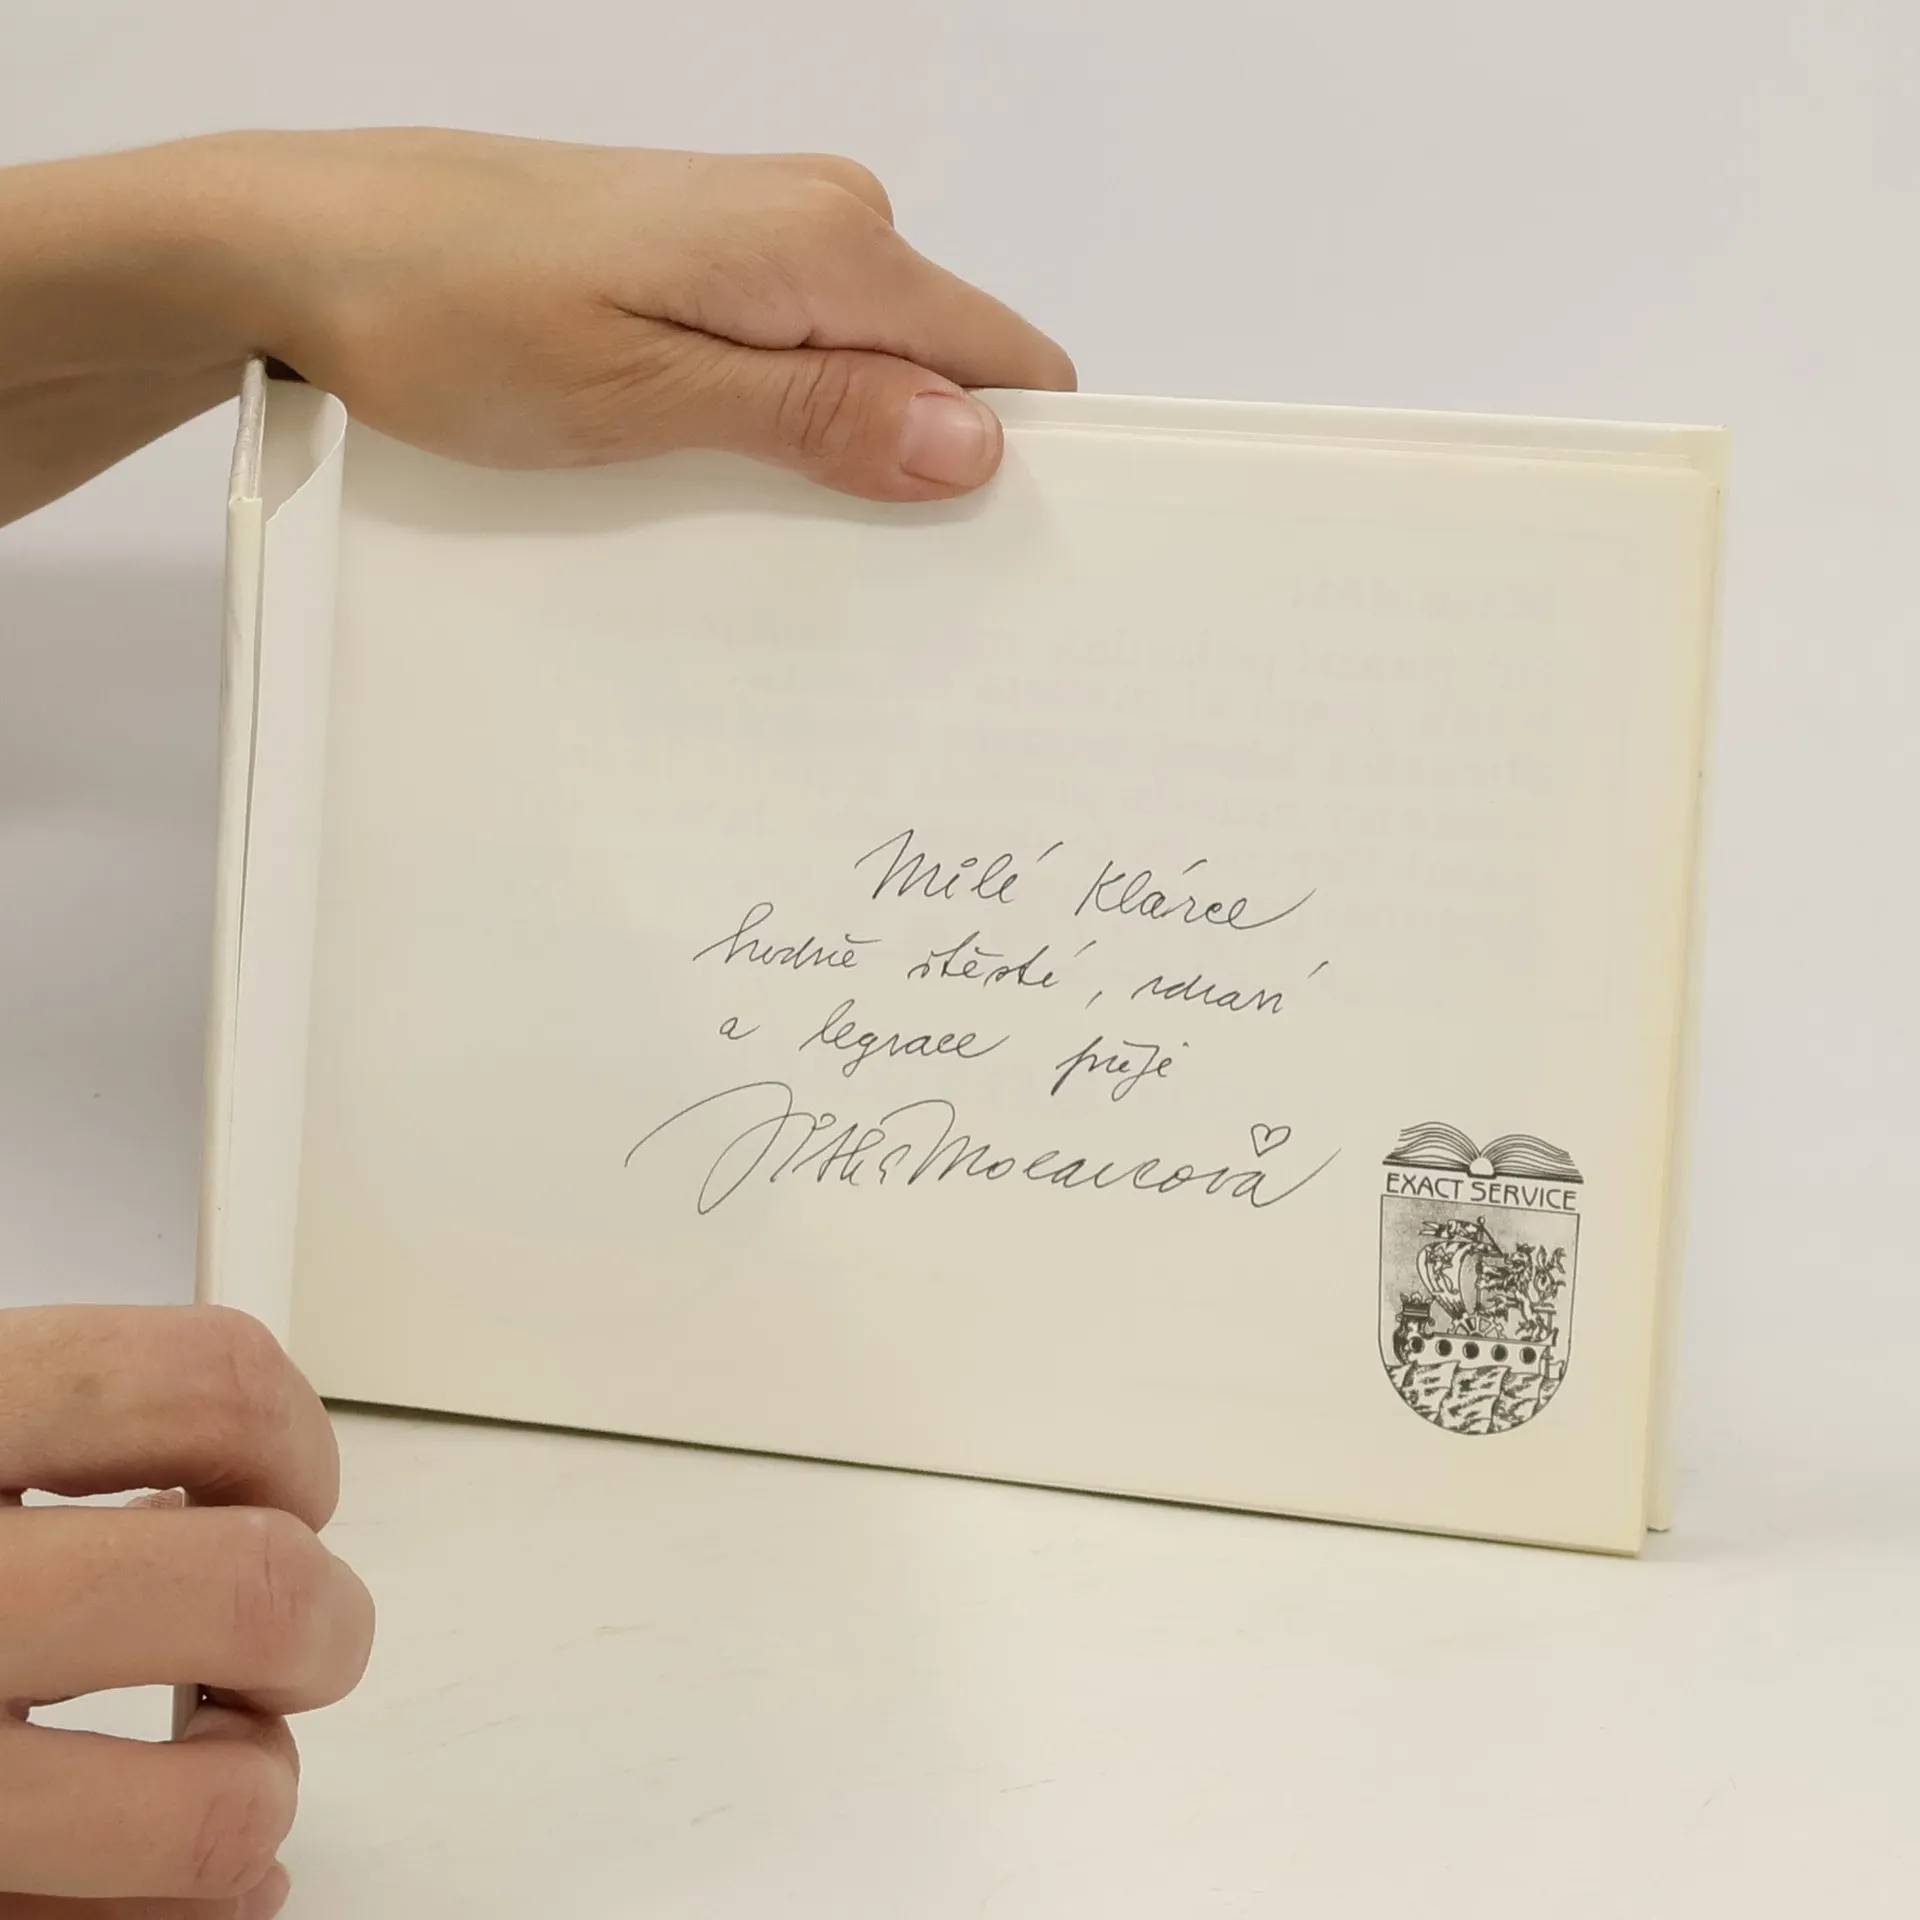 Milé Klárce
hodně štěstí, zdraví
a legrace přeje
Jitka Molavcová
EXACT SERVICE